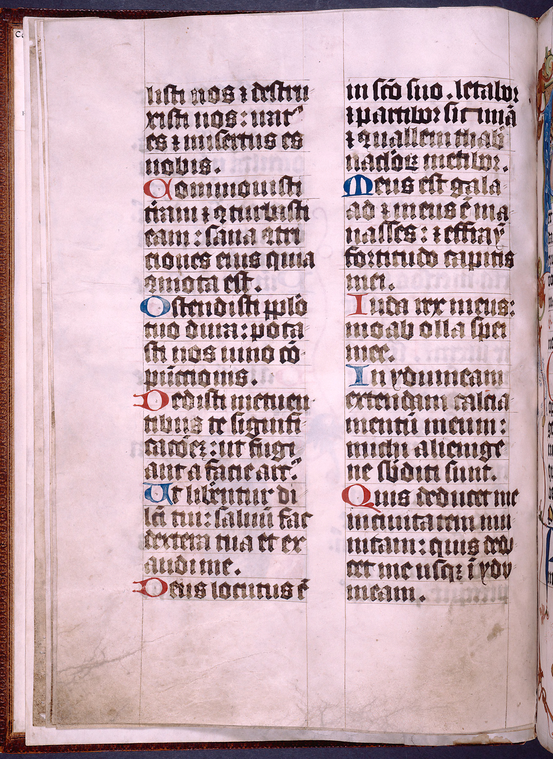 listi nos ⁊ destru
xisti nos : iratꝰ
es ⁊ misertus es
nobis .
Commouisti
trām ⁊ ꝯturbasti
eam : sana ꝯtri
ciones eius quia
ꝯmota est .
Ostendisti pplō
tuo dura : pota
sti nos uino cō
punctionis .
Dedisti metuen
tibus te signifi
cacōeꝫ : ut fugi
ant a facie arcꝰ
Ut libentur di
lc̄i tui : saluū fac
dextera tua et ex
audi me .
Deus locutus ē
in sc̄o suo . letabor
⁊ partibor sicimā
⁊ ꝯuallem thab̄
naclōꝝ metibor .
Meus est gala
ad ⁊ meus ē ma
nasses : ⁊ effraȳ
fortitudo capitis
mei .
Iuda rex meus :
moab olla spei
mee .
In ydumeam
extendam calcia
mentū meum :
michi alienige
ne sb̄diti sunt .
Quis deducet me
in ciuitatem mu
nitam : quis dedu
cet me usqꝫ ī ydu
meam .